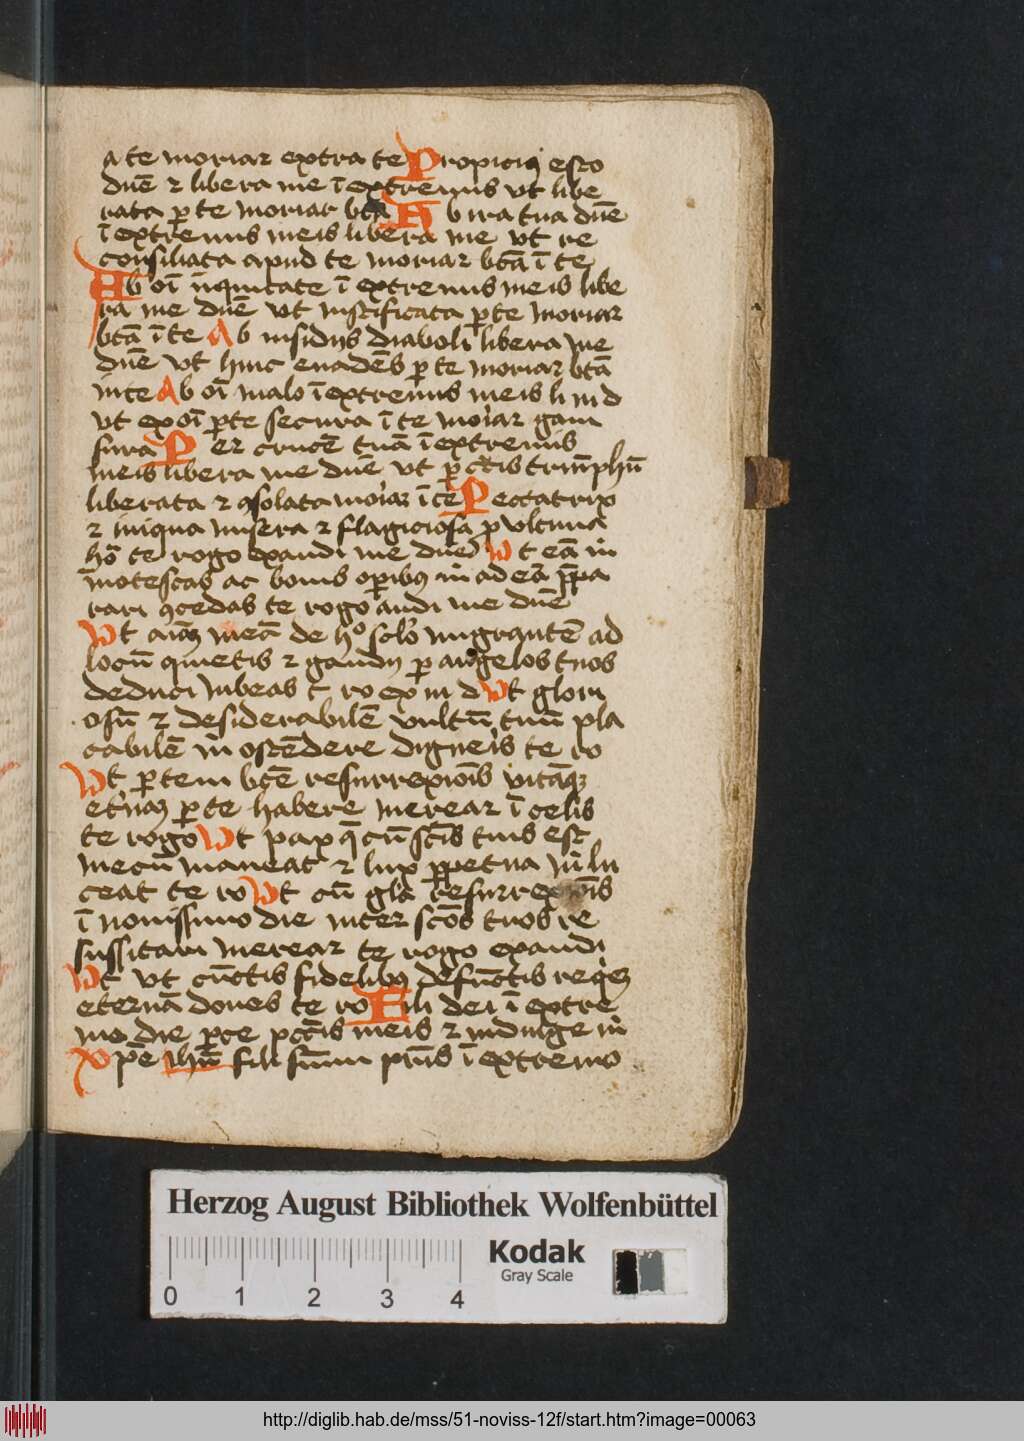 a te moriar extra te Propicius esto
dnē ⁊ libera me ī extremis vt libe
rata p te moriar btā Ab ira tua dnē
ī extremis meis libera me vt re
consiliata apud te moriar btā ī te
Ab oī iniquitate ī extremis meis libe
ra me dnē vt iustificata p te moriar
btā ī te Ab insidijs diaboli libera me
dnē vt hinc euadēs p te moriar btā
in te Ab oī malo ī extremis meis li m d
vt ex oī pte secura ī te moriar gaui
sura Per crucē tuā ī extremis
meis libera me dnē vt p
liberata ⁊ ꝯsolata moriar ī te Peccatrix
⁊ iniqua misera ⁊ flagiciosa p vltima
hō te rogo exaudi me dnē Vt eā
ac bonis opibꝰ
rari ꝯcedas te rogo audi me dnē
Vt aīaꝫ meā de hoͦ solo migrantē ad
locū quietis ⁊ gaudij p angelos tuos
deduci iubeas t ro ex m d Vt glori
osū ⁊ desiderabilē vultū tuū pla
cabilē m ostēdere digneris te ro
Vt ptem btē resurrexiōis vitāqꝫ
et'naꝫ p te habere merear ī celis
te rogo Vt pax q̄ cū sctīs tuis est
mecū maneat ⁊ lux ppetua m lu
ceat te ro Vt cū glā resurrexiōis
ī nouissimo die inter sctōs tuos re
sussitari merear te rogo exaudi
Vt vt cūctis fidelibꝰ defūctis reqeꝫ
eternā dones te ro Fili dei ī extre
mo die pce pctīs meis ⁊ indulge m
Xpē ihū fili sūmi prīs ī extremo
Herzog August Bibliothek Wolfenbüttel
Kodak
Gray Scale
0 1 2 3 4
http://diglib.hab.de/mss/51-noviss-12f/start.htm?image=00063